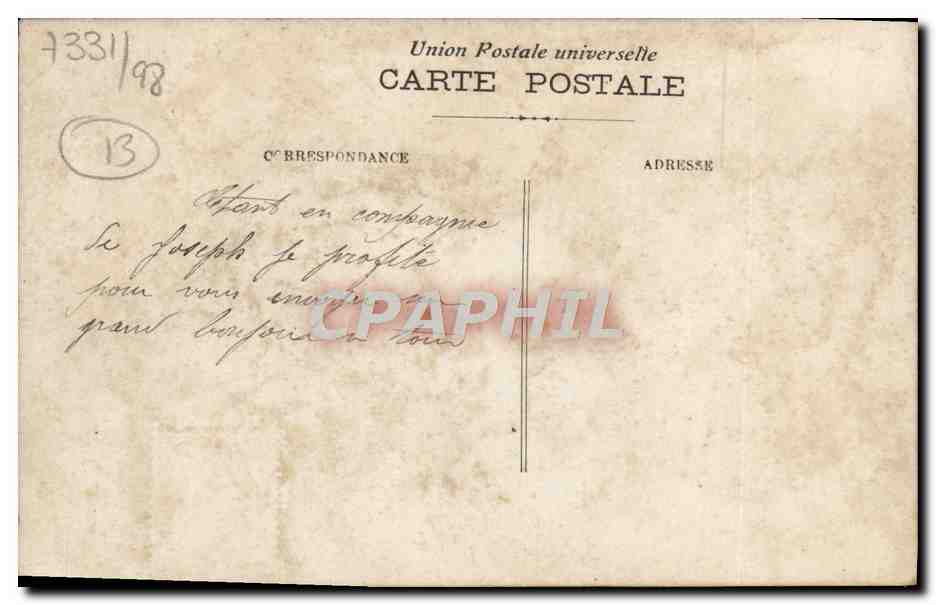 7331/98
13
Union Postale universelle
CARTE POSTALE
CORRESPONDANCE
ADRESSE
Etant en compagnie
de Joseph je profite
pour vous envoyer un
grand bonjour a tous
CPAPHIL